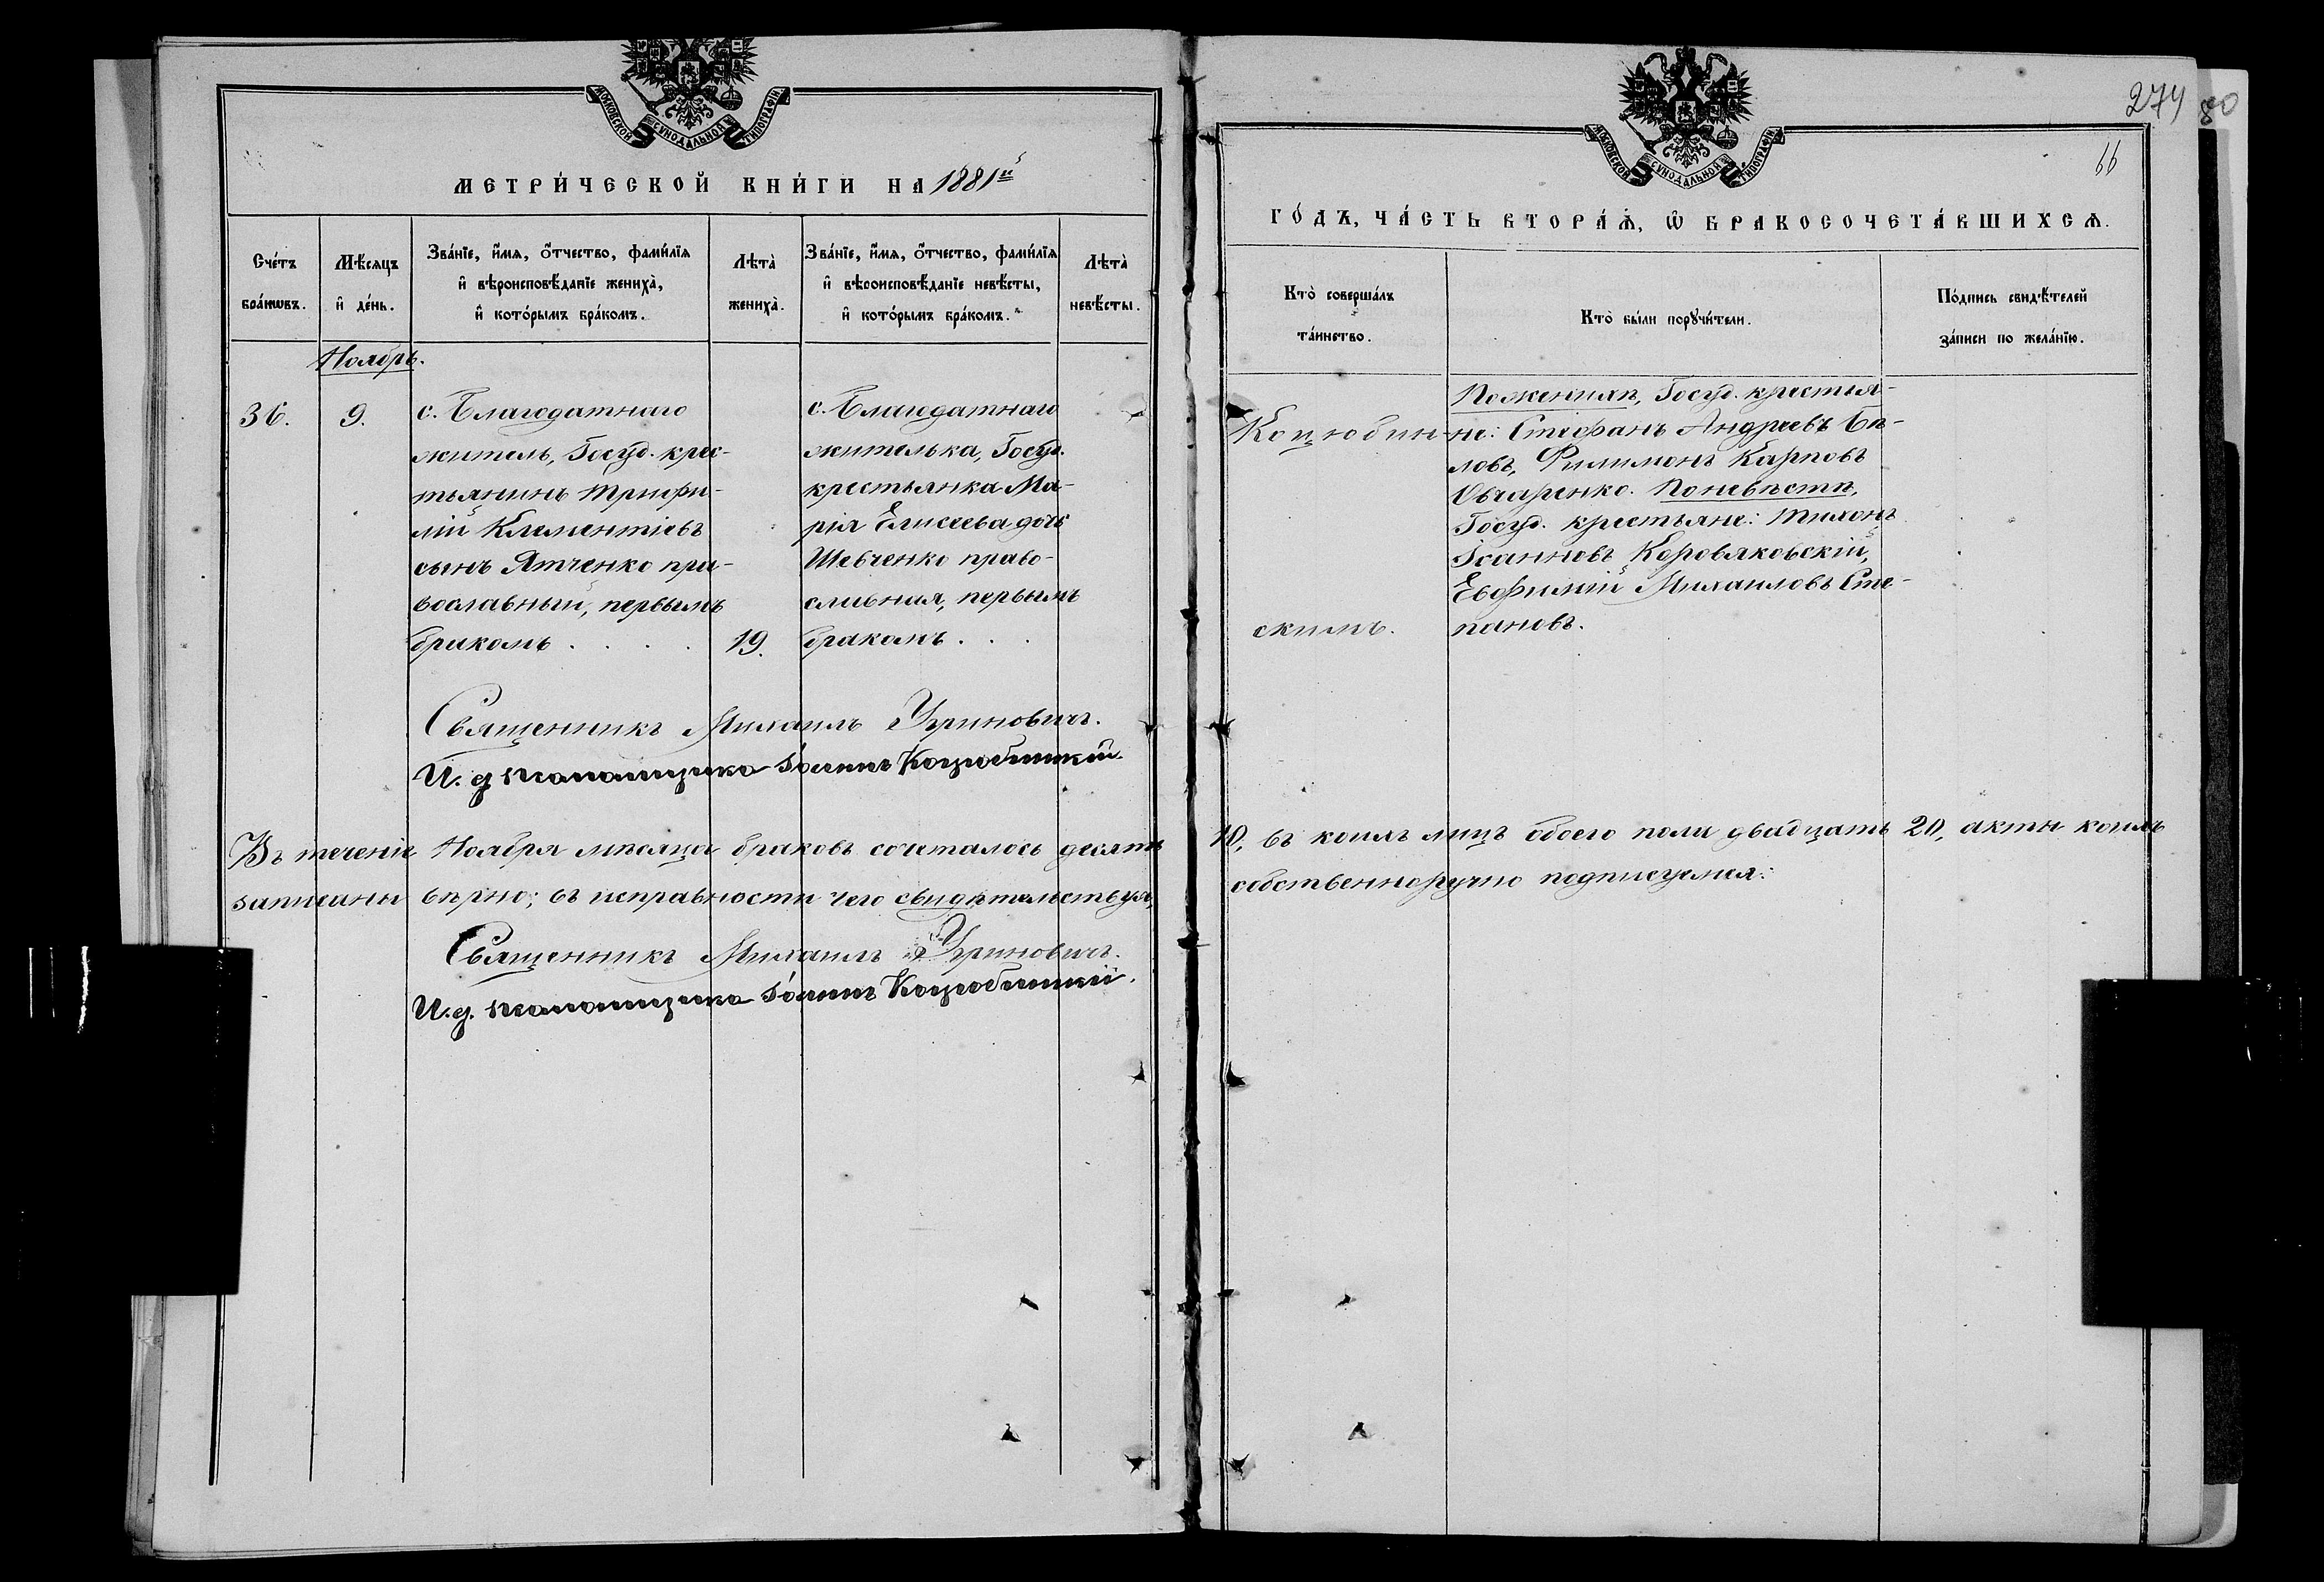 МОСКОВСКОЙ СѴНОДАЛЬНОЙ ТИПОГРАФІИ
МЕТРИ́ЧЕСКОЙ КНИ́ГИ НА 1881й
Сче́тъ бра́кѡвъ.
Мѣ́сяцъ и де́нь.
Зва́нїе, и́мя, о́тчество, фами́лїя и вѣроисповѣ́данїе жениха̀, и кото́рымъ бра́комъ.
Лѣта̀ жениха̀.
Зва́нїе, и́мя, о́тчество, фами́лїя и вѣроисповѣ́данїе невѣ́сты, и кото́рымъ бра́комъ.
Лѣта̀ невѣ́сты.
Ноябрь.
36.
9.
с. Благодатнаго
житель, Госуд. крес-
тьянинъ Трифи-
лій Климентіевъ
сынъ Ятченко пра-
вославный, первымъ
бракомъ . . . .
19.
с. Благодатнаго
жителька, Госуд.
крестьянка Ма-
рія Елисеева дочь
Шевченко право-
славная, первымъ
бракомъ . . .
Священникъ Михаилъ Угриновичъ.
И. д. Іоаннъ Коцюбинскій.
Въ теченіе Ноября мѣсяца браковъ сочеталось десять
записаны вѣрно; въ исправности чего свидѣтельствуя,
Священникъ Михаилъ Угриновичъ.
И. д. Іоаннъ Коцюбинскій.
МОСКОВСКОЙ СѴНОДАЛЬНОЙ ТИПОГРАФІИ
274
80
66
ГО́ДЪ, ЧА́СТЬ ВТОРА́Ѧ, Ѡ БРАКОСОЧЕТА́ВШИХСѦ.
Кто̀ соверша́лъ та́инство.
Кто̀ бы́ли порꙋчи́тели.
По́дпись свидѣ́телей за́писи по жела́нїю.
Коцюбин-
скимъ.
По женихѣ, Госуд. крестья-
не: Стефанъ Андреевъ Бѣ-
ловъ, Филимонъ Карповъ
Овчаренко. По невѣстѣ,
Госуд. крестьяне: Тихонъ
Іоанновъ Коровяковскій,
Евфимій Михаиловъ Сте-
пановъ.
10, въ коихъ лицъ обоего пола двадцать 20, акты коихъ
собственноручно подписуемся: